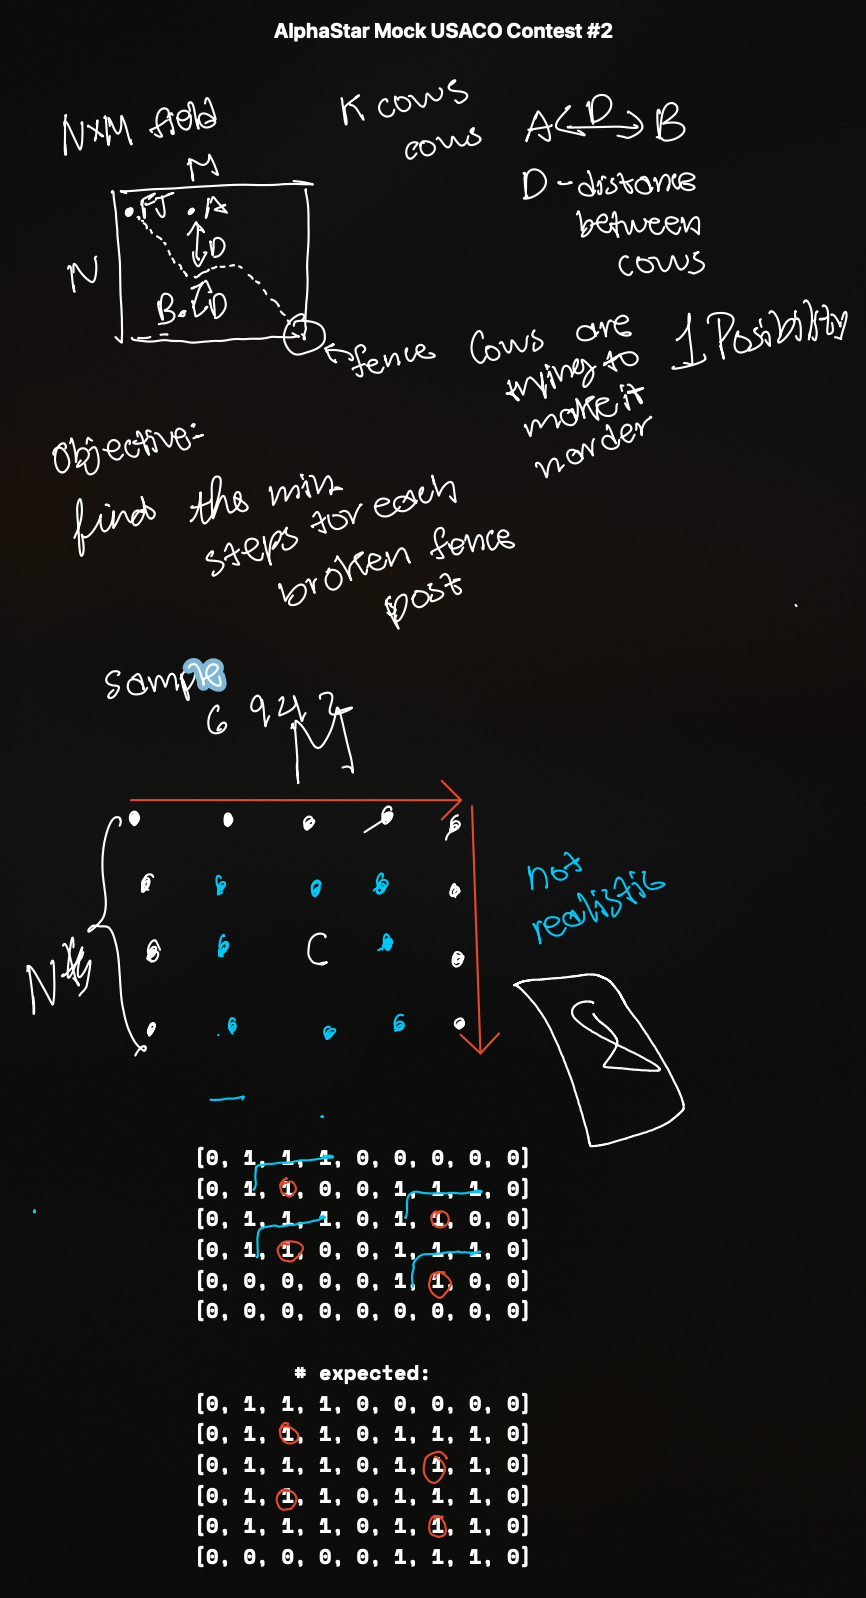 AlphaStar Mock USACO Contest #2
NxM field
K cows
cows
A D B
M
D - distance
between
cows
FJ A
D
N
B D
fence
Cows are
trying to
make it
harder
1 Posibility
Objective:
find the min
steps for each
broken fence
post
sample
6 9 4 2
M
not
realistic
C
N
[0, 1, 1, 1, 0, 0, 0, 0, 0]
[0, 1, 1, 0, 0, 1, 1, 1, 0]
[0, 1, 1, 1, 0, 1, 1, 0, 0]
[0, 1, 1, 0, 0, 1, 1, 1, 0]
[0, 0, 0, 0, 0, 1, 1, 0, 0]
[0, 0, 0, 0, 0, 0, 0, 0, 0]
# expected:
[0, 1, 1, 1, 0, 0, 0, 0, 0]
[0, 1, 1, 1, 0, 1, 1, 1, 0]
[0, 1, 1, 1, 0, 1, 1, 1, 0]
[0, 1, 1, 1, 0, 1, 1, 1, 0]
[0, 1, 1, 1, 0, 1, 1, 1, 0]
[0, 0, 0, 0, 0, 1, 1, 1, 0]